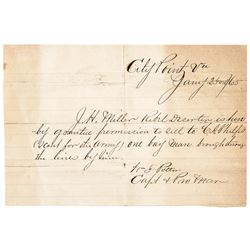 City Point Va
Jany 2nd 1865
J. H. Miller Rebel Deserter is here
by granted permission to sell to C. Phelps
Agent for the Army, one bay mare brought
the lines by him
Capt & Pro Mar